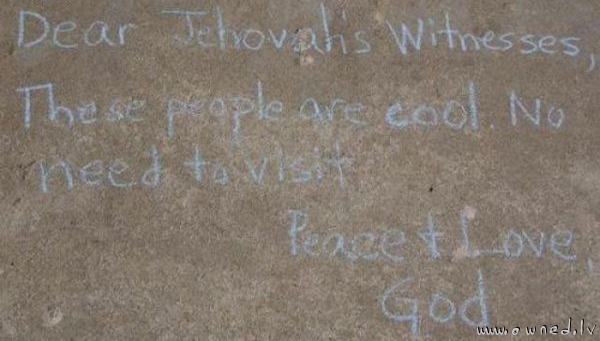 Dear Jehovah's Witnesses,
These people are cool. No
need to visit
Peace + Love,
God
www.owned.lv